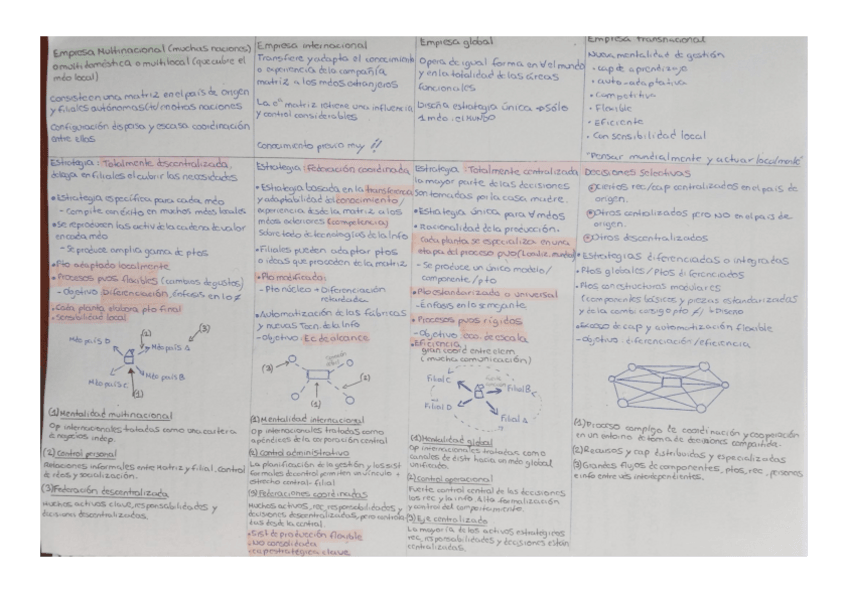 Empresa Multinacional (muchas naciones)
o multidoméstica o multilocal (que cubre el
mdo local)
consiste en una matriz en el país de origen
y filiales autónomas en otras naciones
Configuración dispersa y escasa coordinación
entre ellas
Estrategia: Totalmente descentralizada,
delega en filiales el cubrir las necesidades
• Estrategia específica para cada mdo
- Compite con éxito en muchos mdos locales
• Se reproducen las activ de la cadena de valor
en cada mdo
- Se produce amplia gama de ptos
• Pto adaptado localmente
• Procesos pvos flexibles (cambios de gustos)
- Objetivo: Diferenciación, Énfasis en lo ≠
• Cada planta elabora pto final
• Sensibilidad local
Mdo país D
(1)
(3)
Mdo país A
Mdo país C
Mdo país B
(1)
(1) Mentalidad multinacional
Op internacionales tratadas como una cartera
de negocios indep.
(2) Control personal
Relaciones informales entre Matriz y filial, control
de rdos y socialización.
(3) Federación descentralizada
Muchos activos clave, responsabilidades y
decisiones descentralizadas.
Empresa internacional
Transfiere y adapta el conocimiento
o experiencia de la compañía
matriz a los mdos extranjeros
La eª matriz retiene una influencia
y control considerables
Conocimiento previo muy !!
Estrategia: Federación coordinada
• Estrategia basada en la transferencia
y adaptabilidad del conocimiento /
experiencia desde la matriz a los
mdos exteriores (competencia)
Sobre todo de tecnologías de la Info
• Filiales pueden adaptar ptos
o ideas que proceden de la matriz
• Pto modificado:
- Pto núcleo + Diferenciación
retardada
• Automatización de las fábricas
y nuevas Tecn. de la Info
- Objetivo: Ec de alcance
(3)
(2)
(1)
(1) Mentalidad internacional
Op internacionales tratadas como
apéndices de la corporación central
(2) Control administrativo
La planificación de la gestión y los sist
formales de control permiten un vínculo +
estrecho central-filial
(3) Federaciones coordinadas
Muchos activos, rec, responsabilidades y
decisiones descentralizadas, pero controla
das desde la central.
• Sist de producción flexible
• No consolidada
Empresa global
Opera de igual forma en ∀ el mundo
y en la totalidad de las áreas
funcionales
Diseña estrategia única → Sólo
1 mdo: el MUNDO
Estrategia: Totalmente centralizada
la mayor parte de las decisiones
son tomadas por la casa madre.
• Estrategia única para ∀ mdos
• Racionalidad de la producción.
Cada planta se especializa en una
etapa del proceso pvo
- Se produce un único modelo/
componente/pto
• Pto estandarizado o universal
- Énfasis en lo semejante
• Procesos pvos rígidos
- Objetivo: Eco. de escala
• Eficiencia
gran coord entre elem
(mucha comunicación)
Filial C
Filial B
Filial D
Filial A
(1) Mentalidad global
Op internacionales tratadas como
canales de distr hacia un mdo global
unificado.
(2) Control operacional
Fuerte control central de las decisiones
los rec y la info. Alta formalización
y control del comportamiento.
(3) Eje centralizado
La mayoría de los activos estratégicos
rec, responsabilidades y decisiones están
centralizadas.
Empresa Transnacional
Nueva mentalidad de gestión
• Cap de aprendizaje
• auto-adaptativa
• Competitiva
• Flexible
• Eficiente
• Con sensibilidad local
"Pensar mundialmente y actuar localmente"
Decisiones Selectivas
Ciertos rec/cap centralizados en el país de
origen.
Otros centralizados pero NO en el país de
origen.
Otros descentralizados
• Estrategias diferenciadas o integradas
• Ptos globales / Ptos diferenciados
• Ptos con estructuras modulares
(componentes básicos y piezas estandarizadas
y de la combi consigo pto ≠) → Diseño
• de cap y automatización flexible
- Objetivo: diferenciación/eficiencia
(1) Proceso complejo de coordinación y cooperación
en un entorno de toma de decisiones compartida.
(2) Recursos y cap distribuidas y especializadas
(3) Grandes flujos de componentes, ptos, rec, personas
e info entre uds interdependientes.